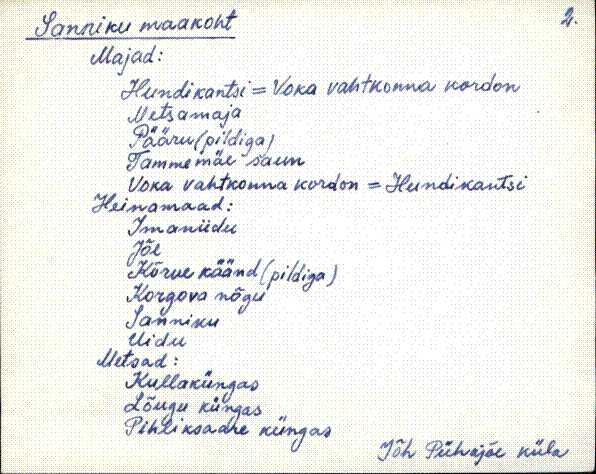 Sanniku maakoht
2.
Majad:
Hundikantsi = Voka vahtkonna kordon
Metsamaja
Pääru (pildiga)
Tammemäe saun
Voka vahtkonna kordon = Hundikantsi
Heinamaad:
Imaniidu
Jõe
Kõrve käänd (pildiga)
Korgova nõgu
Sanniku
Uidu
Metsad:
Kullaküngas
Lõugu küngas
Pihliksaare küngas
Jõh Pühajõe küla